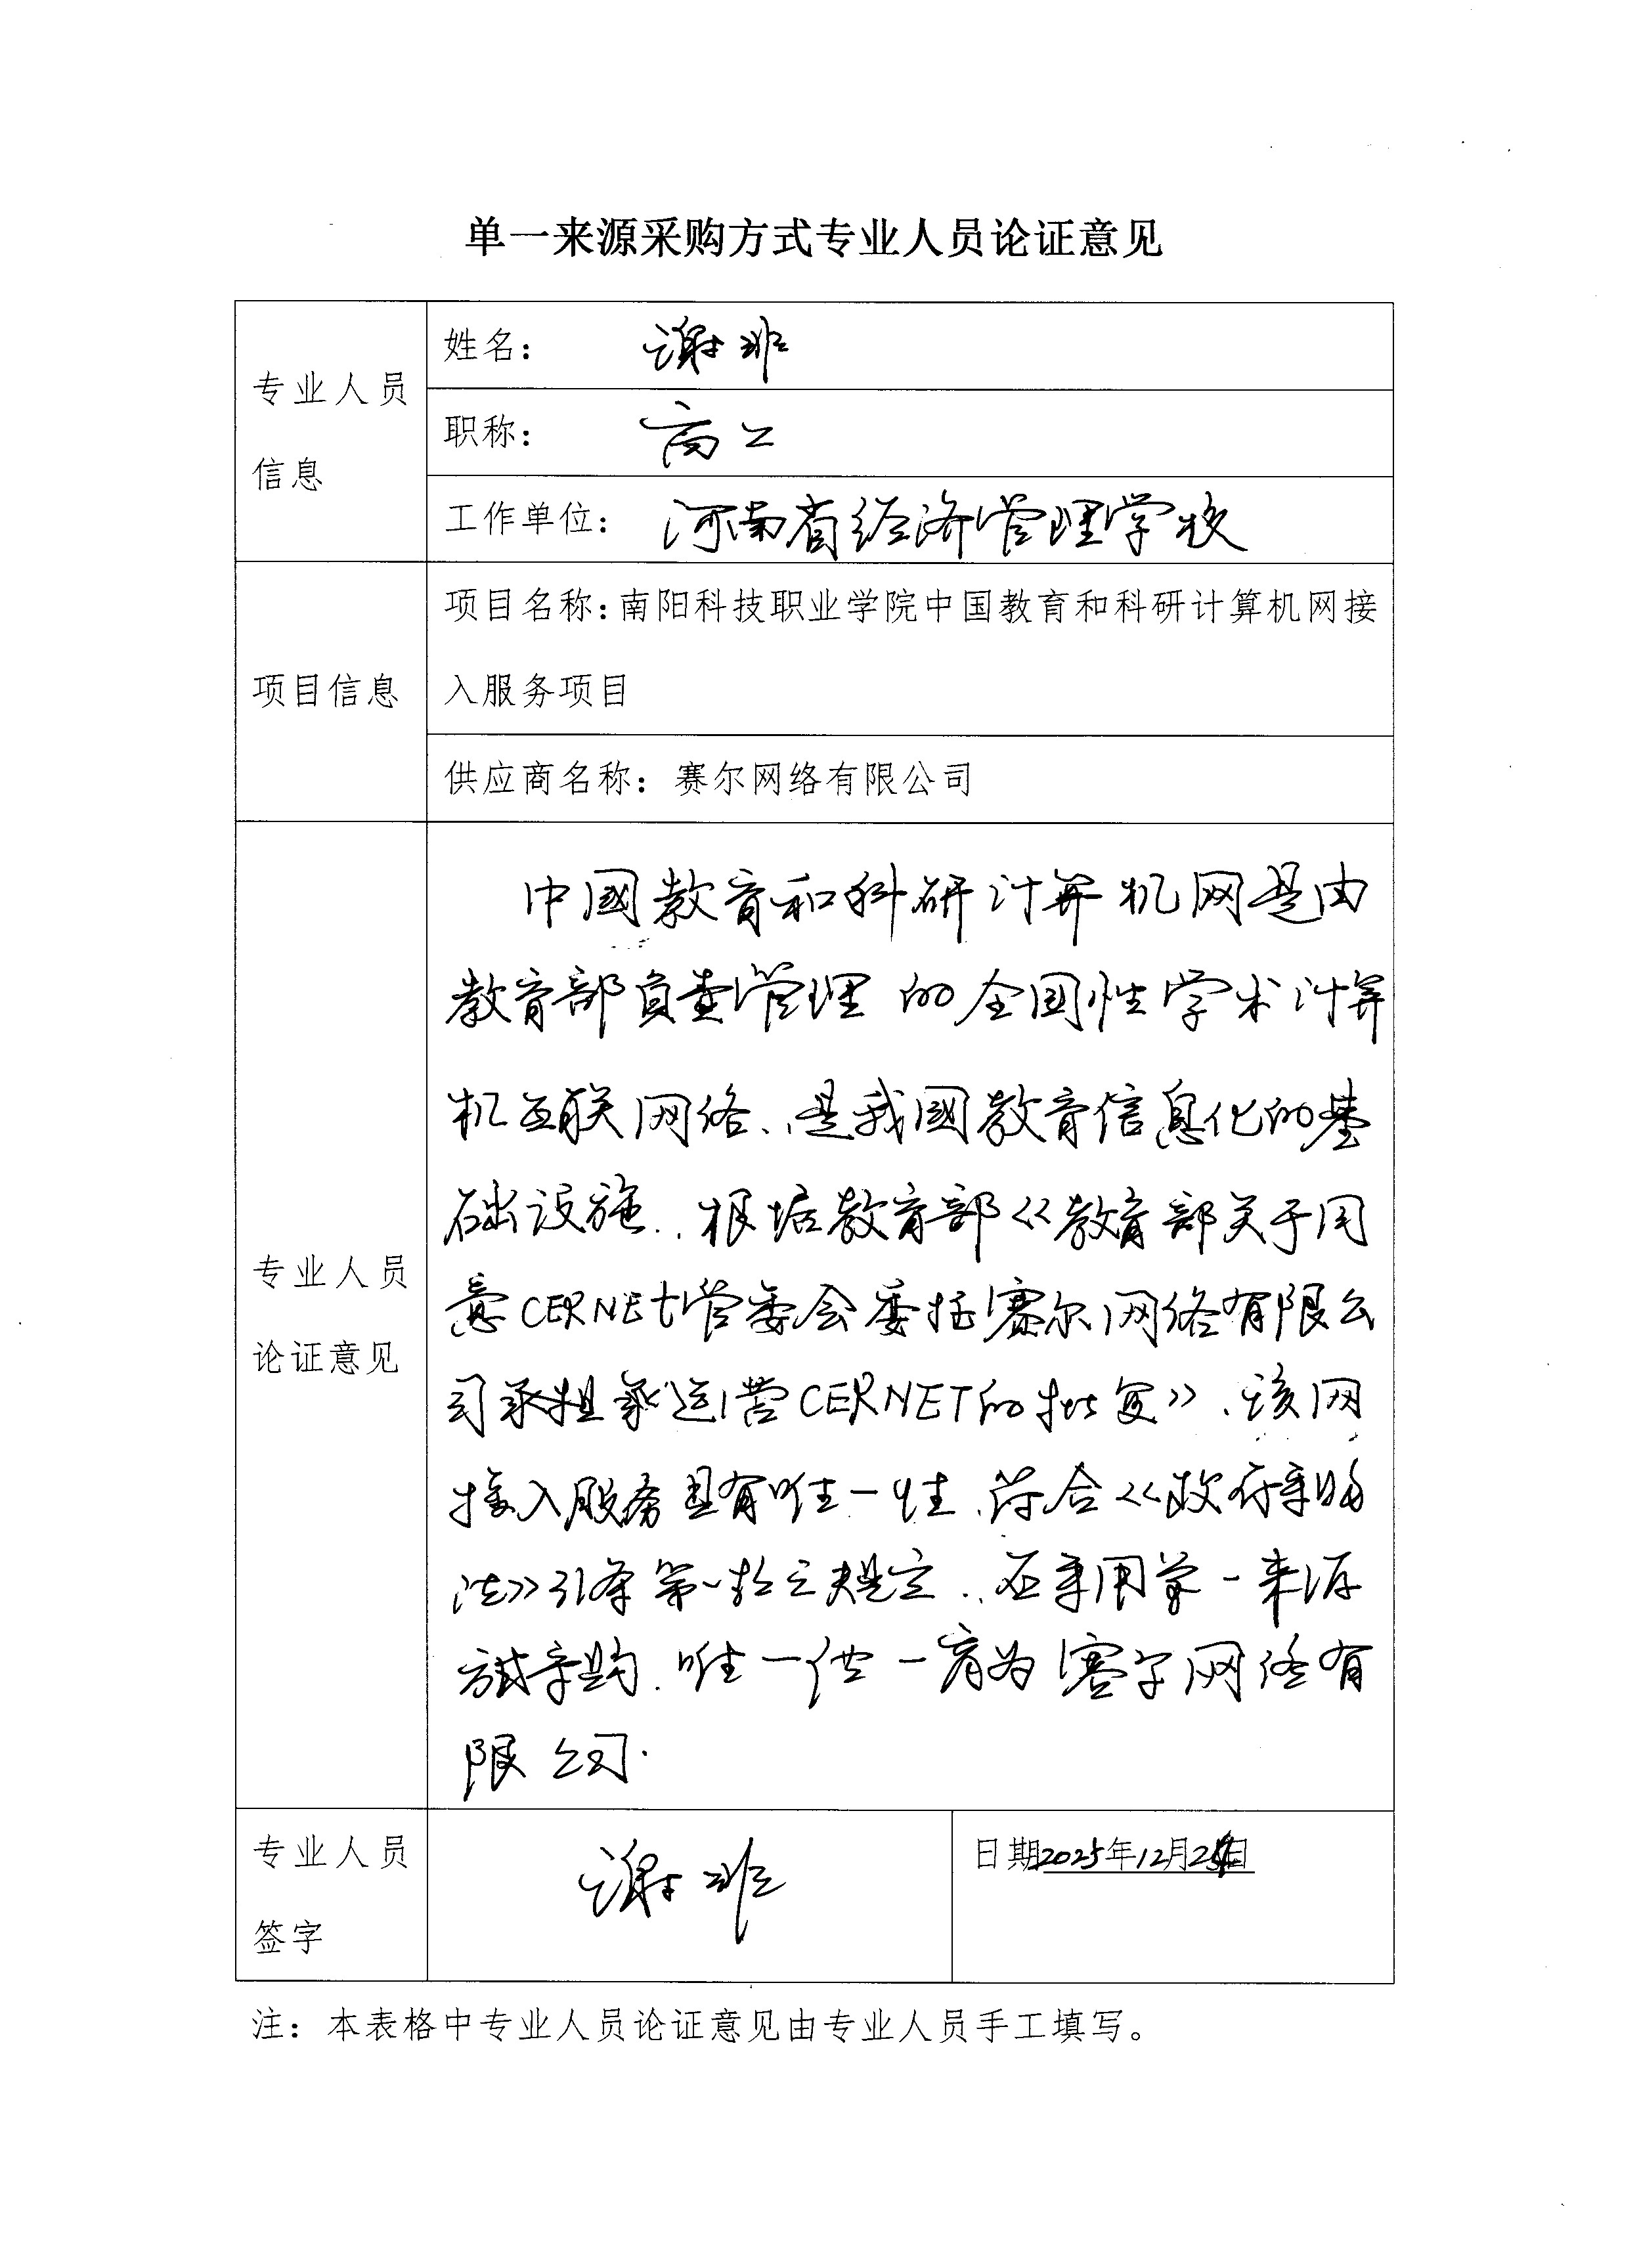 单一来源采购方式专业人员论证意见
专业人员
信息
姓名：谢
职称：高工
工作单位：河南省经济管理学校
项目信息
项目名称：南阳科技职业学院中国教育和科研计算机网接
入服务项目
供应商名称：赛尔网络有限公司
专业人员
论证意见
中國教育和科研计算机网是由
教育部负责管理的全国性学术计算
机互联网络、是我國教育信息化的基
础设施.根据教育部《教育部关于同
意CERNET管委会委托赛尔网络有限公
司承担 运营CERNET的批复》、该网
接入服务具有唯一性、符合《政府采购
法》31条第一款之规定.应采用单一来源
方式采购.唯一供 商为赛尔网络有
限公司.
专业人员
签字
谢
日期2025年12月2 日
注：本表格中专业人员论证意见由专业人员手工填写。